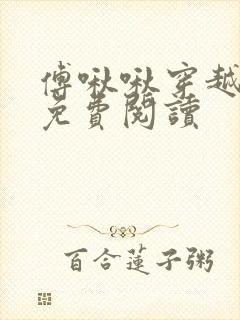 傅啾啾穿越
免費閱讀
百合蓮子粥